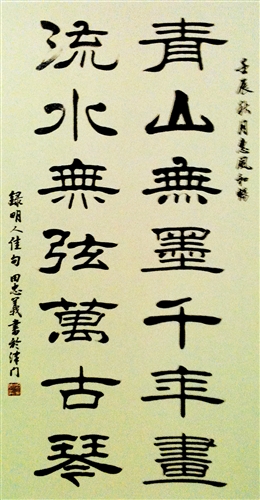 壬辰秋月惠風和暢
青山無墨千年畫
流水無弦萬古琴
録明人佳句田忠義書於津門